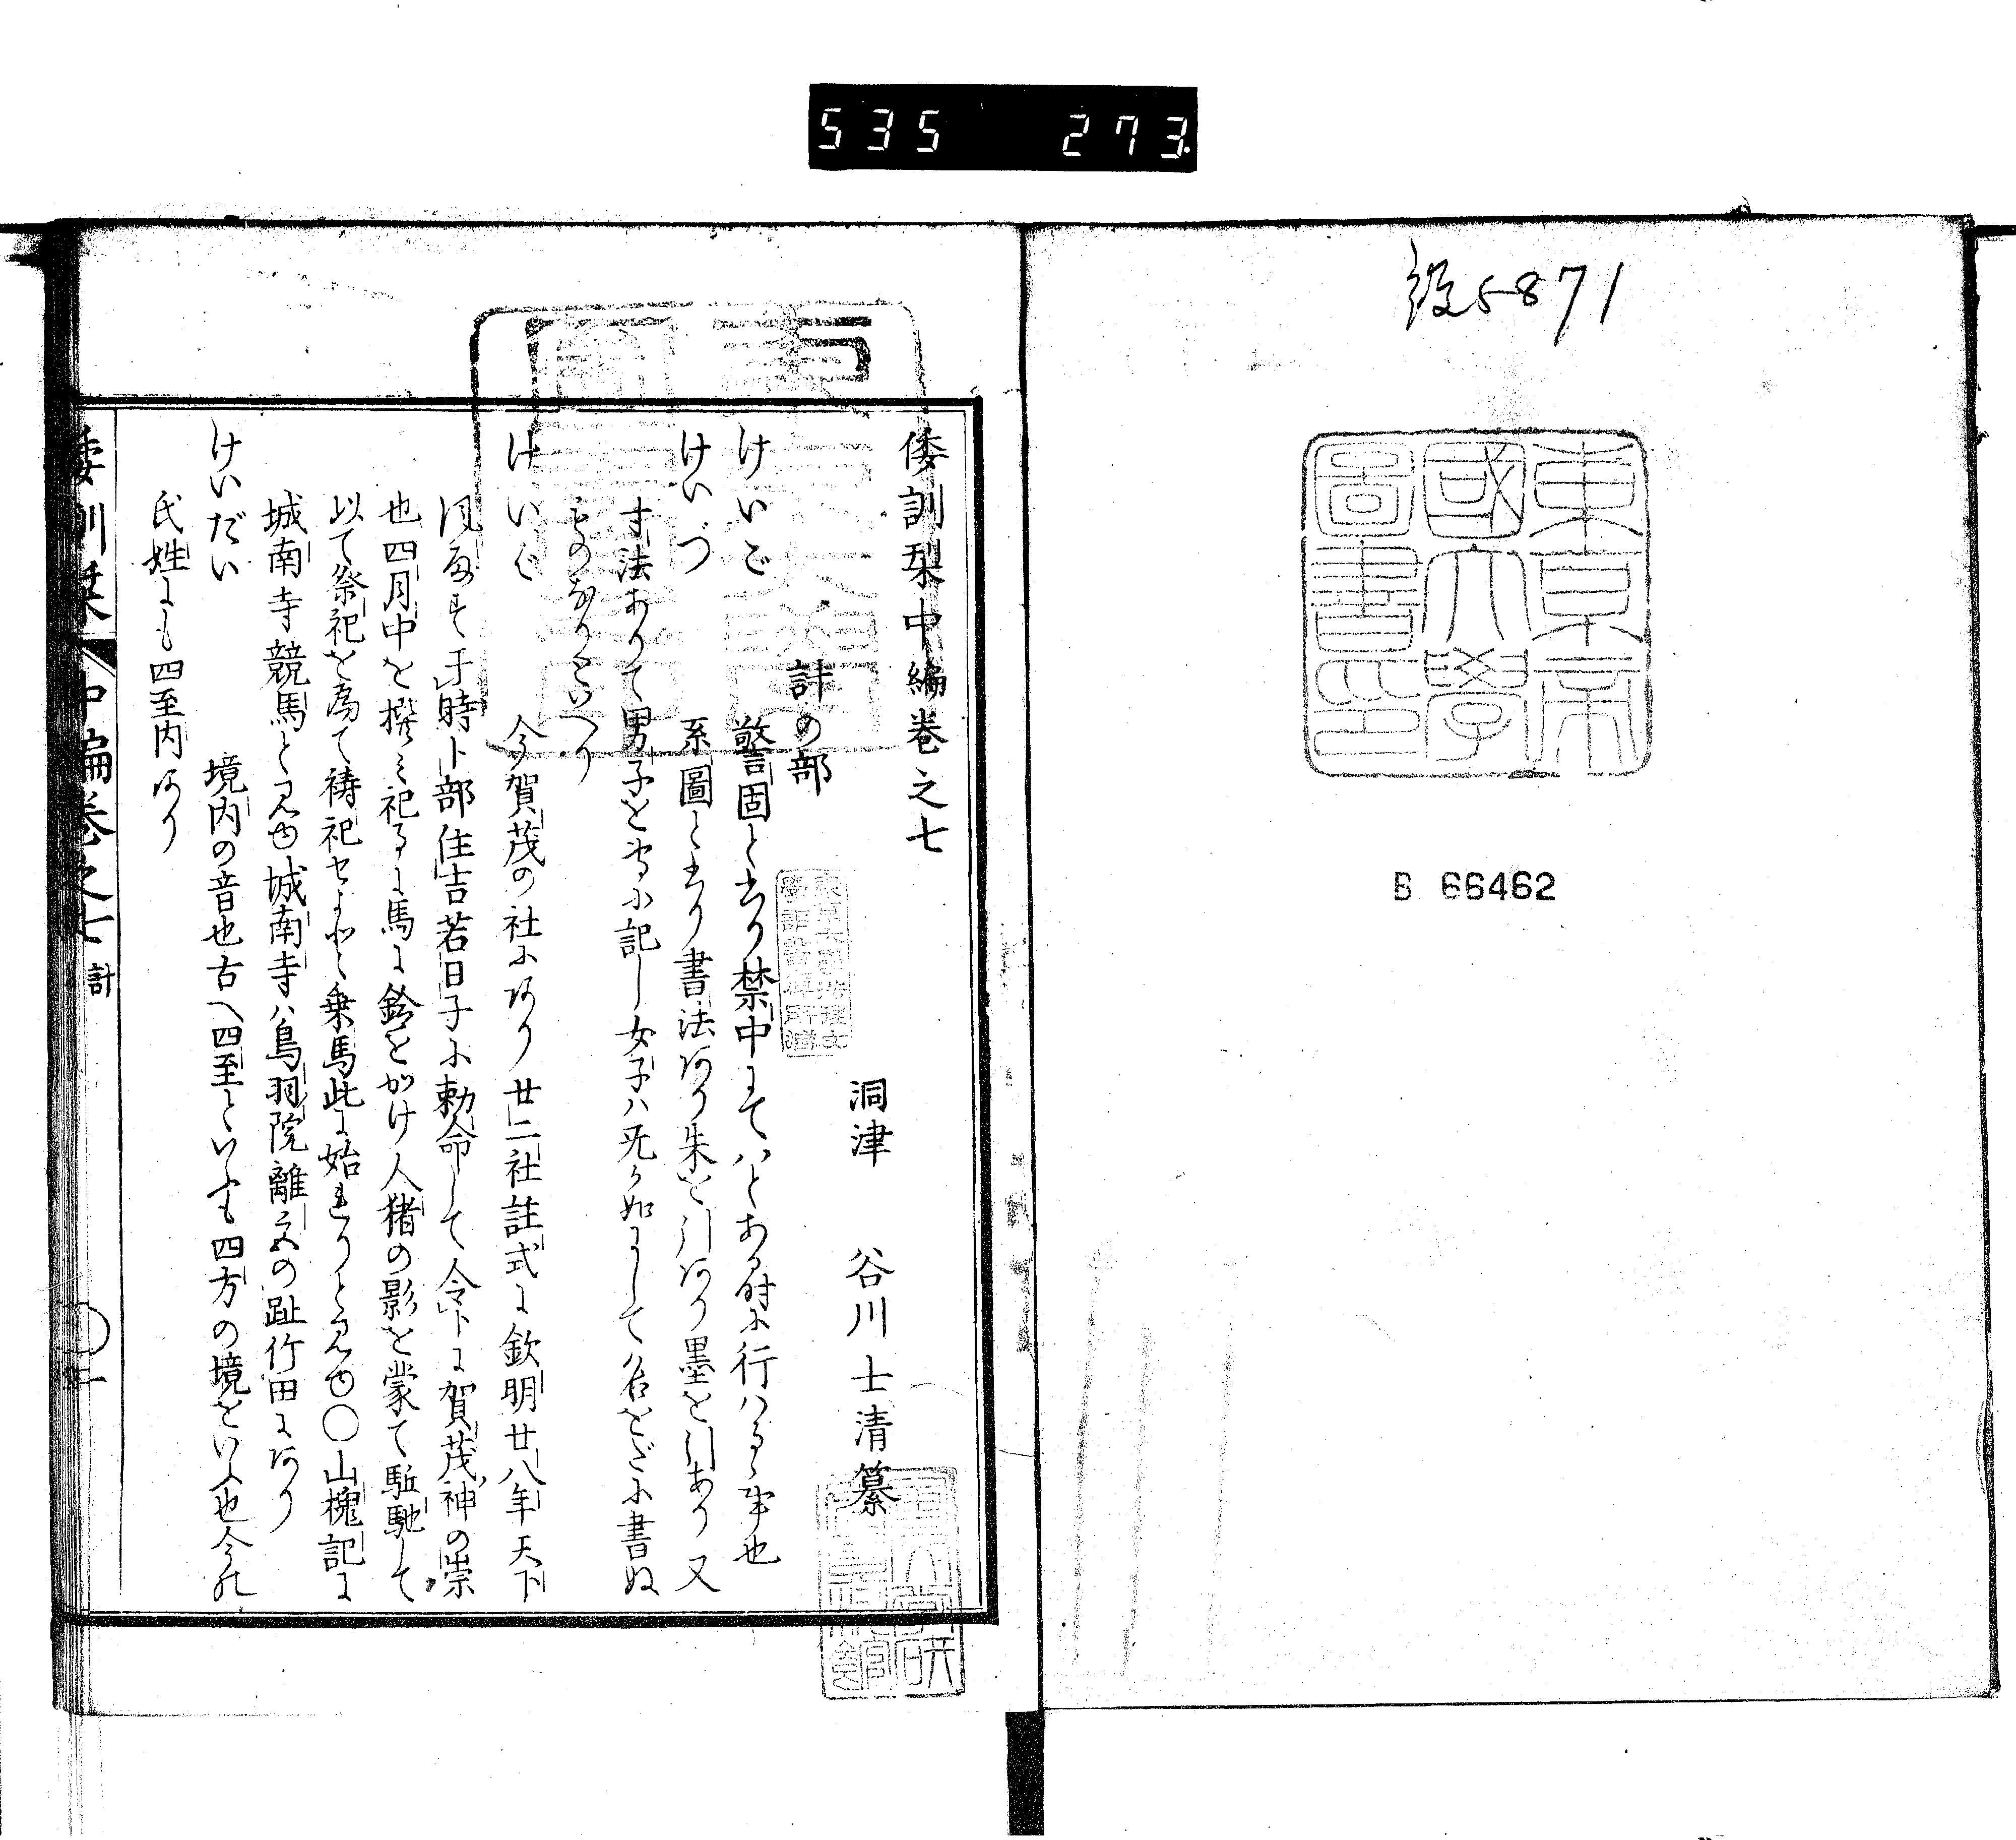 535 273
5871
東京帝
國大學
圖書印
B 66462
倭訓栞中編巻之七
洞津 谷川士清纂
計の部
けいご 警固と書り禁中にてハとある時に行ハるゝ事也
けいづ 系圖と書り書法あり朱を引あり墨を引あり又
寸法ありて男子を本に記し女子ハ死か如にして名をだに書ぬ
ものなりといへり
けいば 今賀茂の社にあり廿二社註式に欽明廿八年天下
風雨す于時卜部住吉若日子に勅命して令卜に賀茂神の崇
也四月中を撰ミ祀るに馬に鈴をかけ人猪の影を蒙て駈馳して
以て祭祀を為て祷祀せよれく乗馬此に始まりと見ゆ〇山槐記に
城南寺競馬と見ゆ城南寺ハ鳥羽院離宮の趾竹田にあり
けいだい 境内の音也古へ四至といふも四方の境をいへ也今の
氏姓にも四至内あり
倭訓栞 中編巻之七 計 一